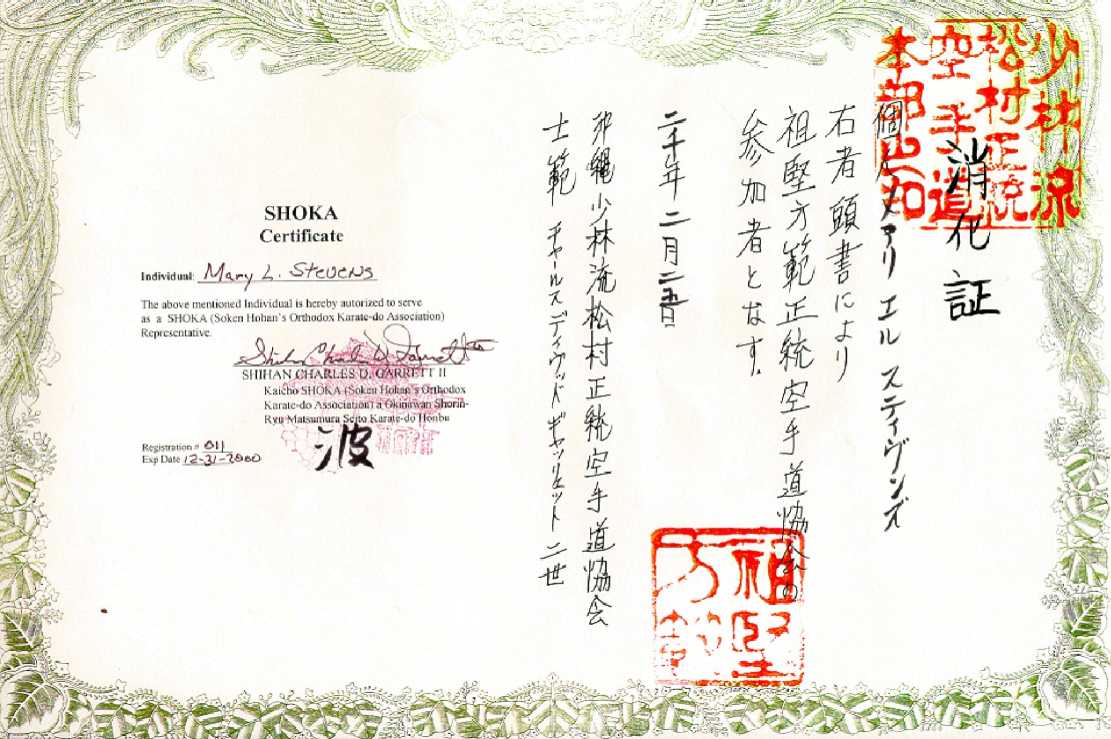 少林流
松村正統
空手道
本部之印
消化証
個人メアリ エル スティヴンズ
右者頭書により
祖堅方範正統空手道協会の
参加者となす.
二千年二月二五日
沖縄少林流松村正統空手道協会
士範 チャールス デイヴィッド ギャリェット 二世
祖堅
方範
SHOKA
Certificate
Individual: Mary L. Stevens
The above mentioned Individual is hereby autorized to serve
as a SHOKA (Soken Hohan's Orthodox Karate-do Association)
Representative.
Shihan Charles D. Garrett
SHIHAN CHARLES D. GARRETT II
Kaicho SHOKA (Soken Hohan's Orthodox
Karate-do Association) a Okinawan Shorin-
Ryu Matsumura Seito Karate-do Honbu
波
Registration # 011
Exp Date 12-31-2000